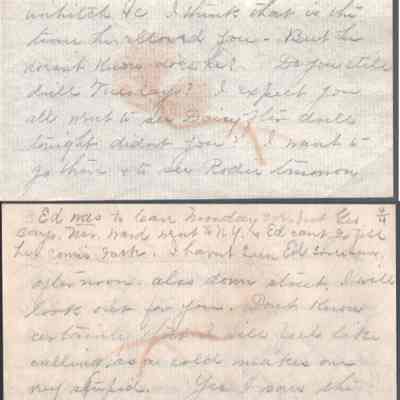 unhitch &c I think that is the
time he allowed you - But he
doesnt know does he? Do you still
drill Tuesdays? I expect you
all went to see Daisy drill
tonight didnt you? I want to
go there & to see Rodie
3 Ed was to leave Monday but Geo
says, Mr. Ward went to N.Y. & Ed cant go till
he comes back. I havnt seen Ed
afternoon. also down street, I will
look out for you. Dont know
certainly that I will feel like
calling, as a cold makes one
very stupid. Yes I saw the